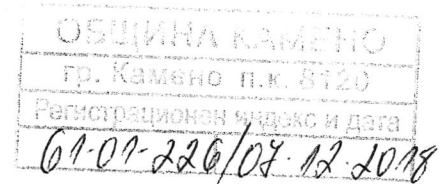 ОБЩИНА КАМЕНО
гр. Камено п.к. 8120
Регистрационен индекс и дата
61-01-226/07.12.2018